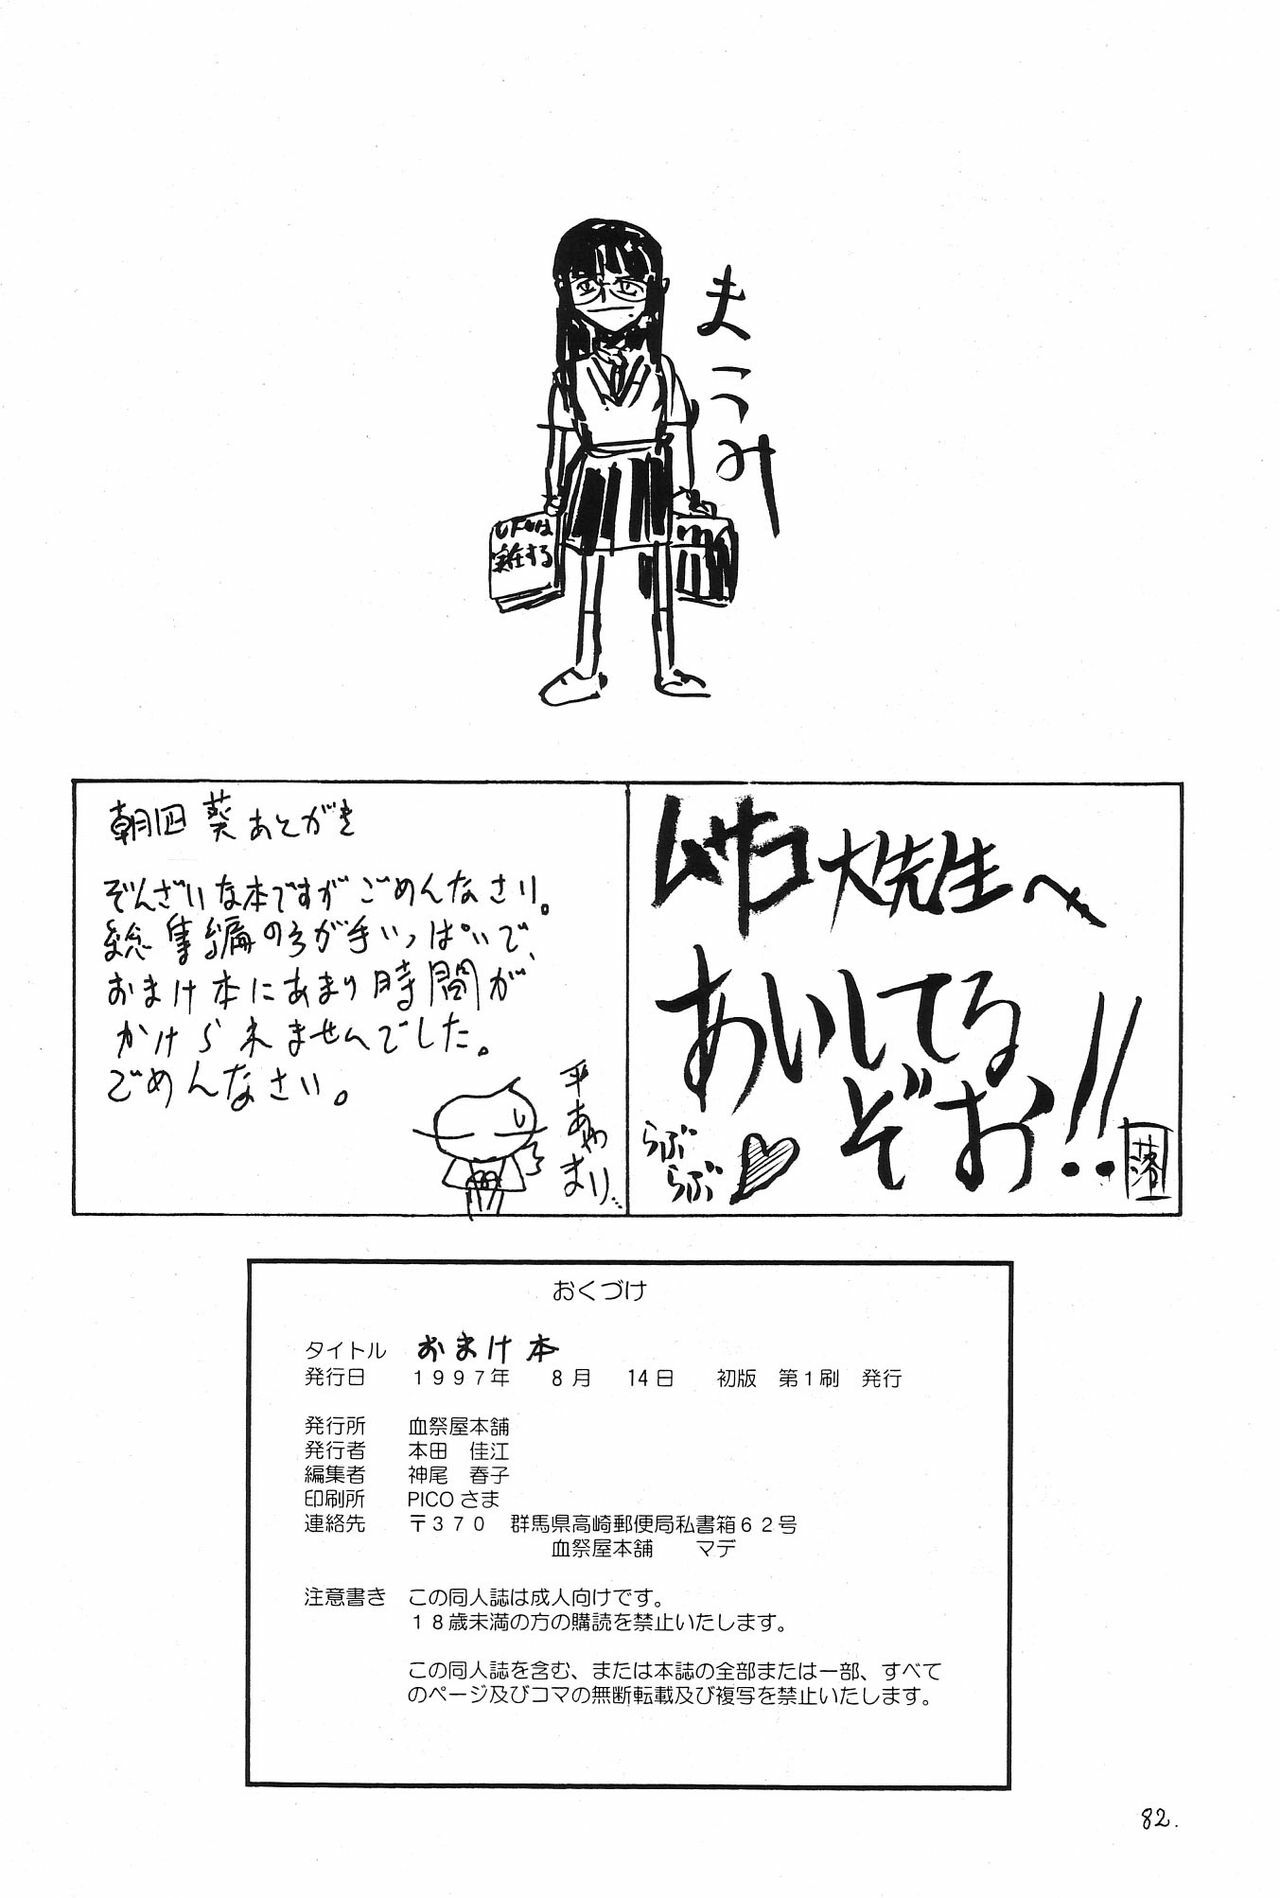 まこみ
UFOは
実在する
朝凪 葵 あとがき
ぞんざいな本ですがごめんなさい。
総集編の方が手いっぱいで
おまけ本にあまり時間が
かけられませんでした。
ごめんなさい。
平あやまり…
ムサコ大先生へ
あいしてる
ぞお!!
らぶ
らぶ
落
おくづけ
タイトル おまけ本
発行日 1997年 8月 14日 初版 第1刷 発行
発行所 血祭屋本舗
発行者 本田 佳江
編集者 神尾 春子
印刷所 PICOさま
連絡先 〒370 群馬県高崎郵便局私書箱62号
血祭屋本舗 マデ
注意書き この同人誌は成人向けです。
18歳未満の方の購読を禁止いたします。
この同人誌を含む、または本誌の全部または一部、すべて
のページ及びコマの無断転載及び複写を禁止いたします。
82.